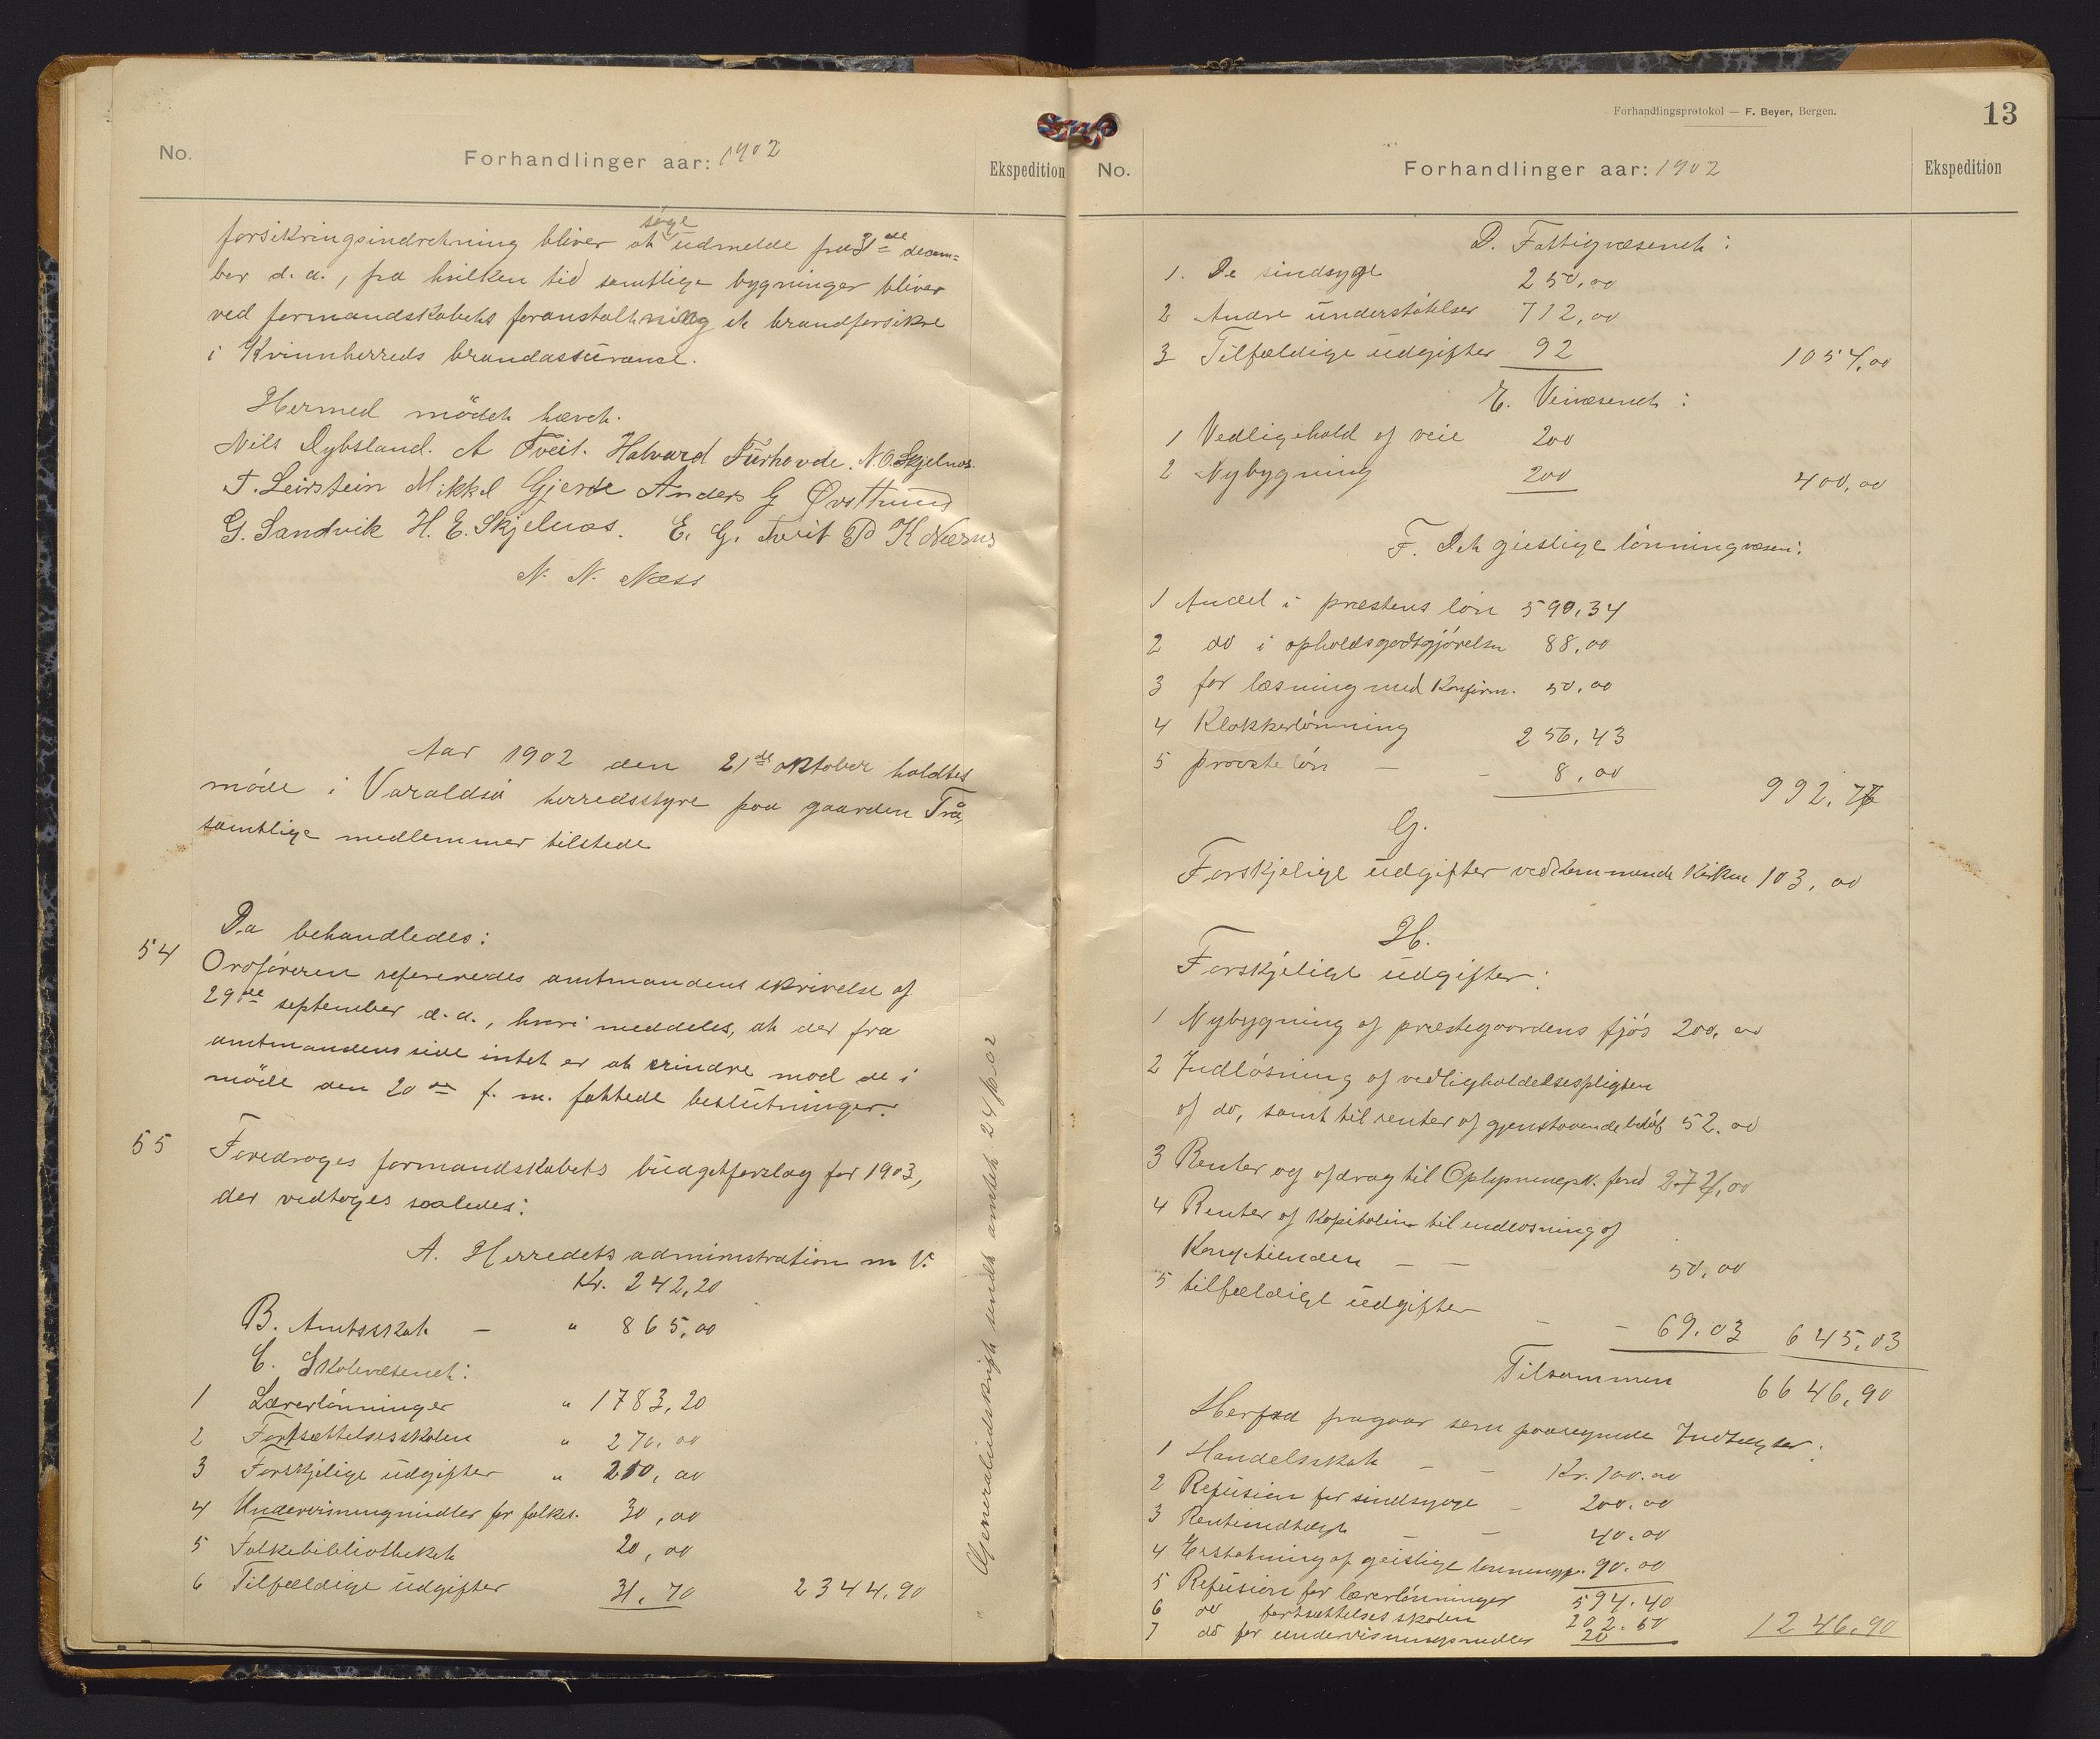 No.
Forhandlinger aar: 1902
Ekspedition
forsikringsindretning bliver at søge udmelde fra 31de decem-
ber d. a., fra hvilken tid samtlige bygninger bliver
ved formandskabets foranstaltning at brandforsikre
i Kvinnherreds brandassurance.
Hermed mödet hævet.
Nils Dybsland. A Tveit. Halvard Furhovde. N. O. Skjelnæs.
T. Leirstein Mikkel Gjerde Anders G Østhund
G. Sandvik H. E. Skjelnæs. E. G. Tveit P K Næsns
N. N. Næss
Aar 1902 den 21de oktober holdtes
möde i Varaldsö herredsstyre paa gaarden Traa,
samtlige medlemmer tilstede
Da behandledes:
54
Ordföreren refereredes amtmandens skrivelse af
29de september d. a., hvori meddeles, at der fra
amtmandens side intet er at erindre mod de i
möde den 20de f. m. fattede beslutninger.
55
Foredroges formandskabets budgetforslag for 1903,
der vedtoges saaledes:
A. Herredets adminstration m V.
Kr. 242,20
B. Amtsskat — " 865,00
C. Skolevæsenet:
1 Lærerlönninger " 1783,20
2 Fortsættelsesskolen " 270,00
3 Forskjelige udgifter " 210,00
4 Undervisningmidler for folkes. 30,00
5 Folkebibliotheket 20,00
6 Tilfældige udgifter 31.70 2344.90
Generaludskrift sendt amtet 24/10 02
Forhandlingsprotokol — F. Beyer, Bergen.
13
No.
Forhandlinger aar: 1902
Ekspedition
D. Fattigvæsenet:
1. De sindsyge 250,00
2 Andre understöttelser 712,00
3 Tilfældige udgifter 92 1054,00
E. Veivæsenet:
1 Vedligehold af veie 200
2 Nybygning 200 400,00
F. Det gieslige lönningvæsen:
1 Andel i præstens lön 590,34
2 do i opholdsgodtgjörelse 88,00
3 for læsning med Konfirm. 50,00
4 Klokkerlönning 256,43
5 provste lön — - 8,00 992.77
G.
Forskjelige udgifter vedkommende Kirken 103,00
H.
Forskjelige udgifter:
1 Nybygning af præstegaardens fjös 200,00
2 Indlösning af vedligholdelsespligten
af do, samt til renter af gjenstaaende belöb 52.00
3 Renter og afdrag til Oplysningsv. fond 274,00
4 Renter af Kapitalen til indlösning af
Kongetienden — — 50,00
5 tilfældige udgifter - - 69.03 645,03
Tilsammen 6646,90
Herfra fragaar som paaregnede Indtægter:
1 Handelsskat — - Kr. 100.00
2 Refusion for sindsyge - 200.00
3 Renteindtægt — - 40.00
4 Erstatning af geistlige lönningsv. 90.00
5 Refusion for lærerlönninger 594.40
6 do fortsættelses skolen 202.50
7 do for undervisningsmidler 20 1246.90